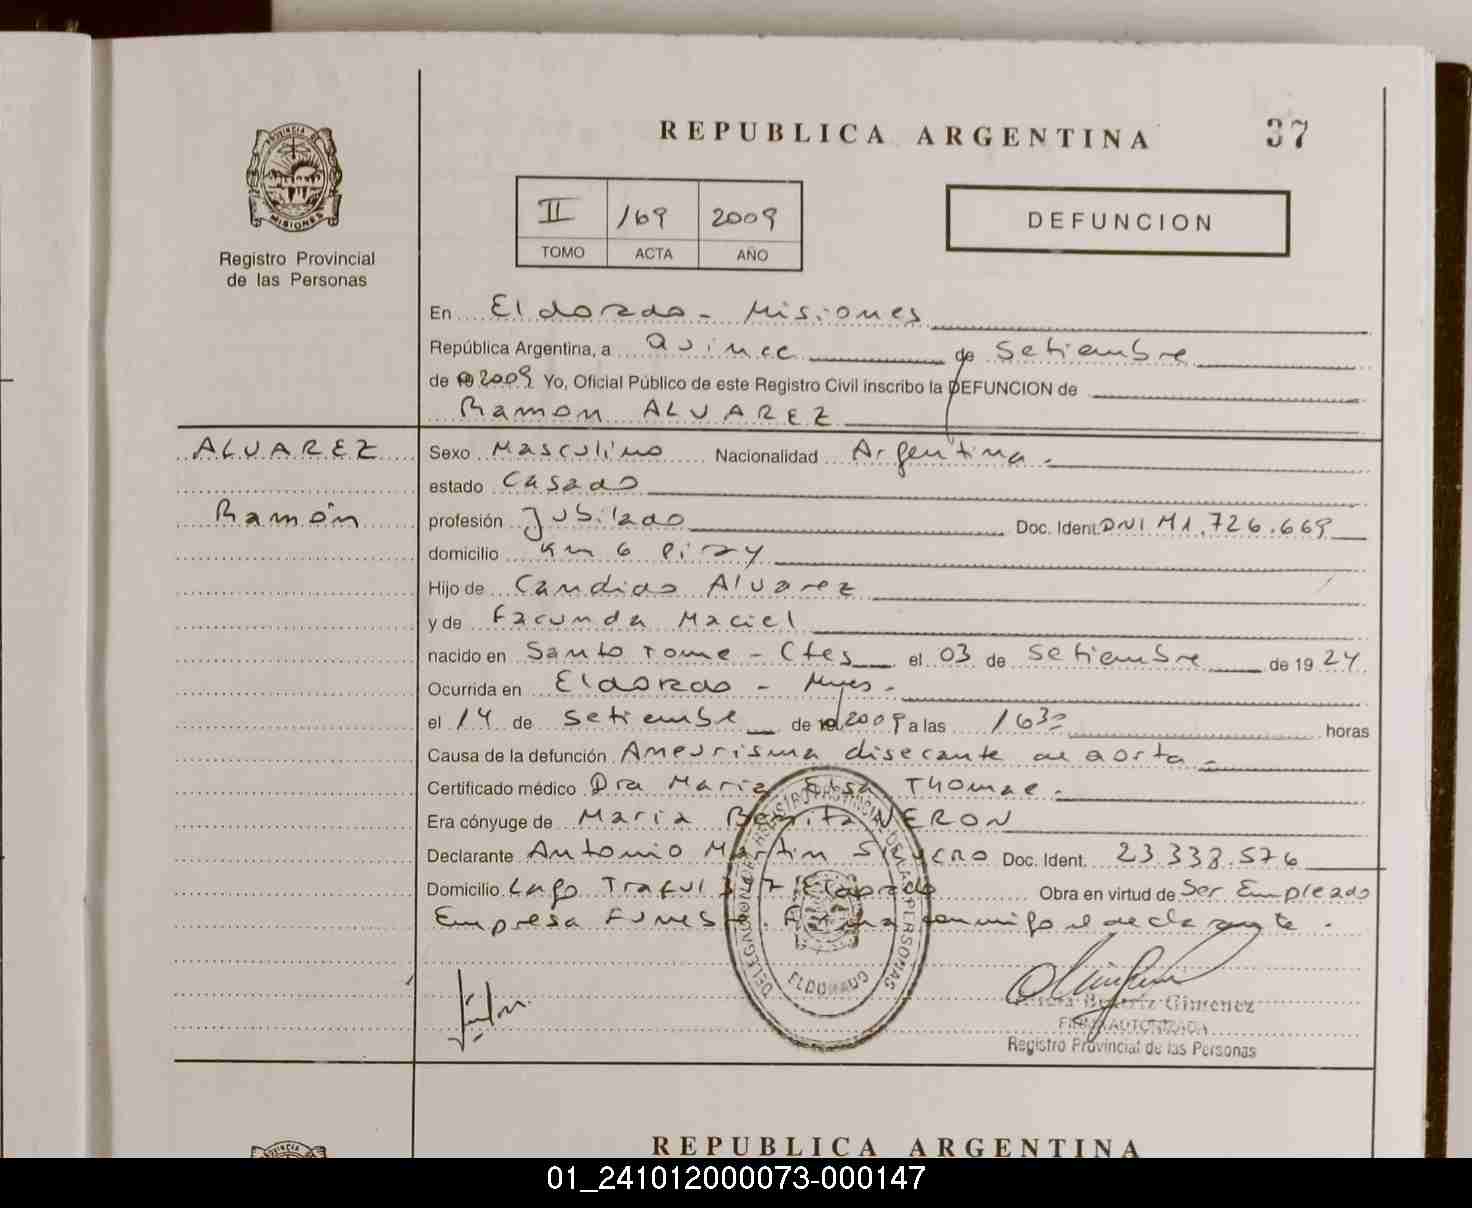 REPUBLICA ARGENTINA 37
PROVINCIA DE
MISIONES
Registro Provincial
de las Personas
II 169 2009
TOMO ACTA AÑO
DEFUNCION
En Eldorado - Misiones
República Argentina, a Quince de Setiembre
de 2009 Yo, Oficial Público de este Registro Civil inscribo la DEFUNCION de
Ramon ALVAREZ
ALVAREZ
Ramón
Sexo Masculino Nacionalidad Argentina.
estado Casado
profesión Jubilado Doc. Ident. DNI M1.726.669
domicilio Km 6 Piray
Hijo de Candido Alvarez
y de Facunda Maciel
nacido en Santo Tome - Ctes el 03 de Setiembre de 1924
Ocurrida en Eldorado - Mnes.
el 14 de Setiembre de 2009 a las 1630 horas
Causa de la defunción Aneurisma disecante de aorta.
Certificado médico Dra Maria Elsa Thomae.
Era cónyuge de Maria Benita NERON
Declarante Antonio Martin Doc. Ident. 23.338.576
Domicilio Lago Traful Eldorado Obra en virtud de Ser Empleado
Empresa Funeb. Firma conmigo el declarante.
DELEGACION DEL REGISTRO PROVINCIAL DE LAS PERSONAS
ELDORADO
Beatriz Gimenez
FIRMA AUTORIZADA
Registro Provincial de las Personas
REPUBLICA ARGENTINA
01_241012000073-000147